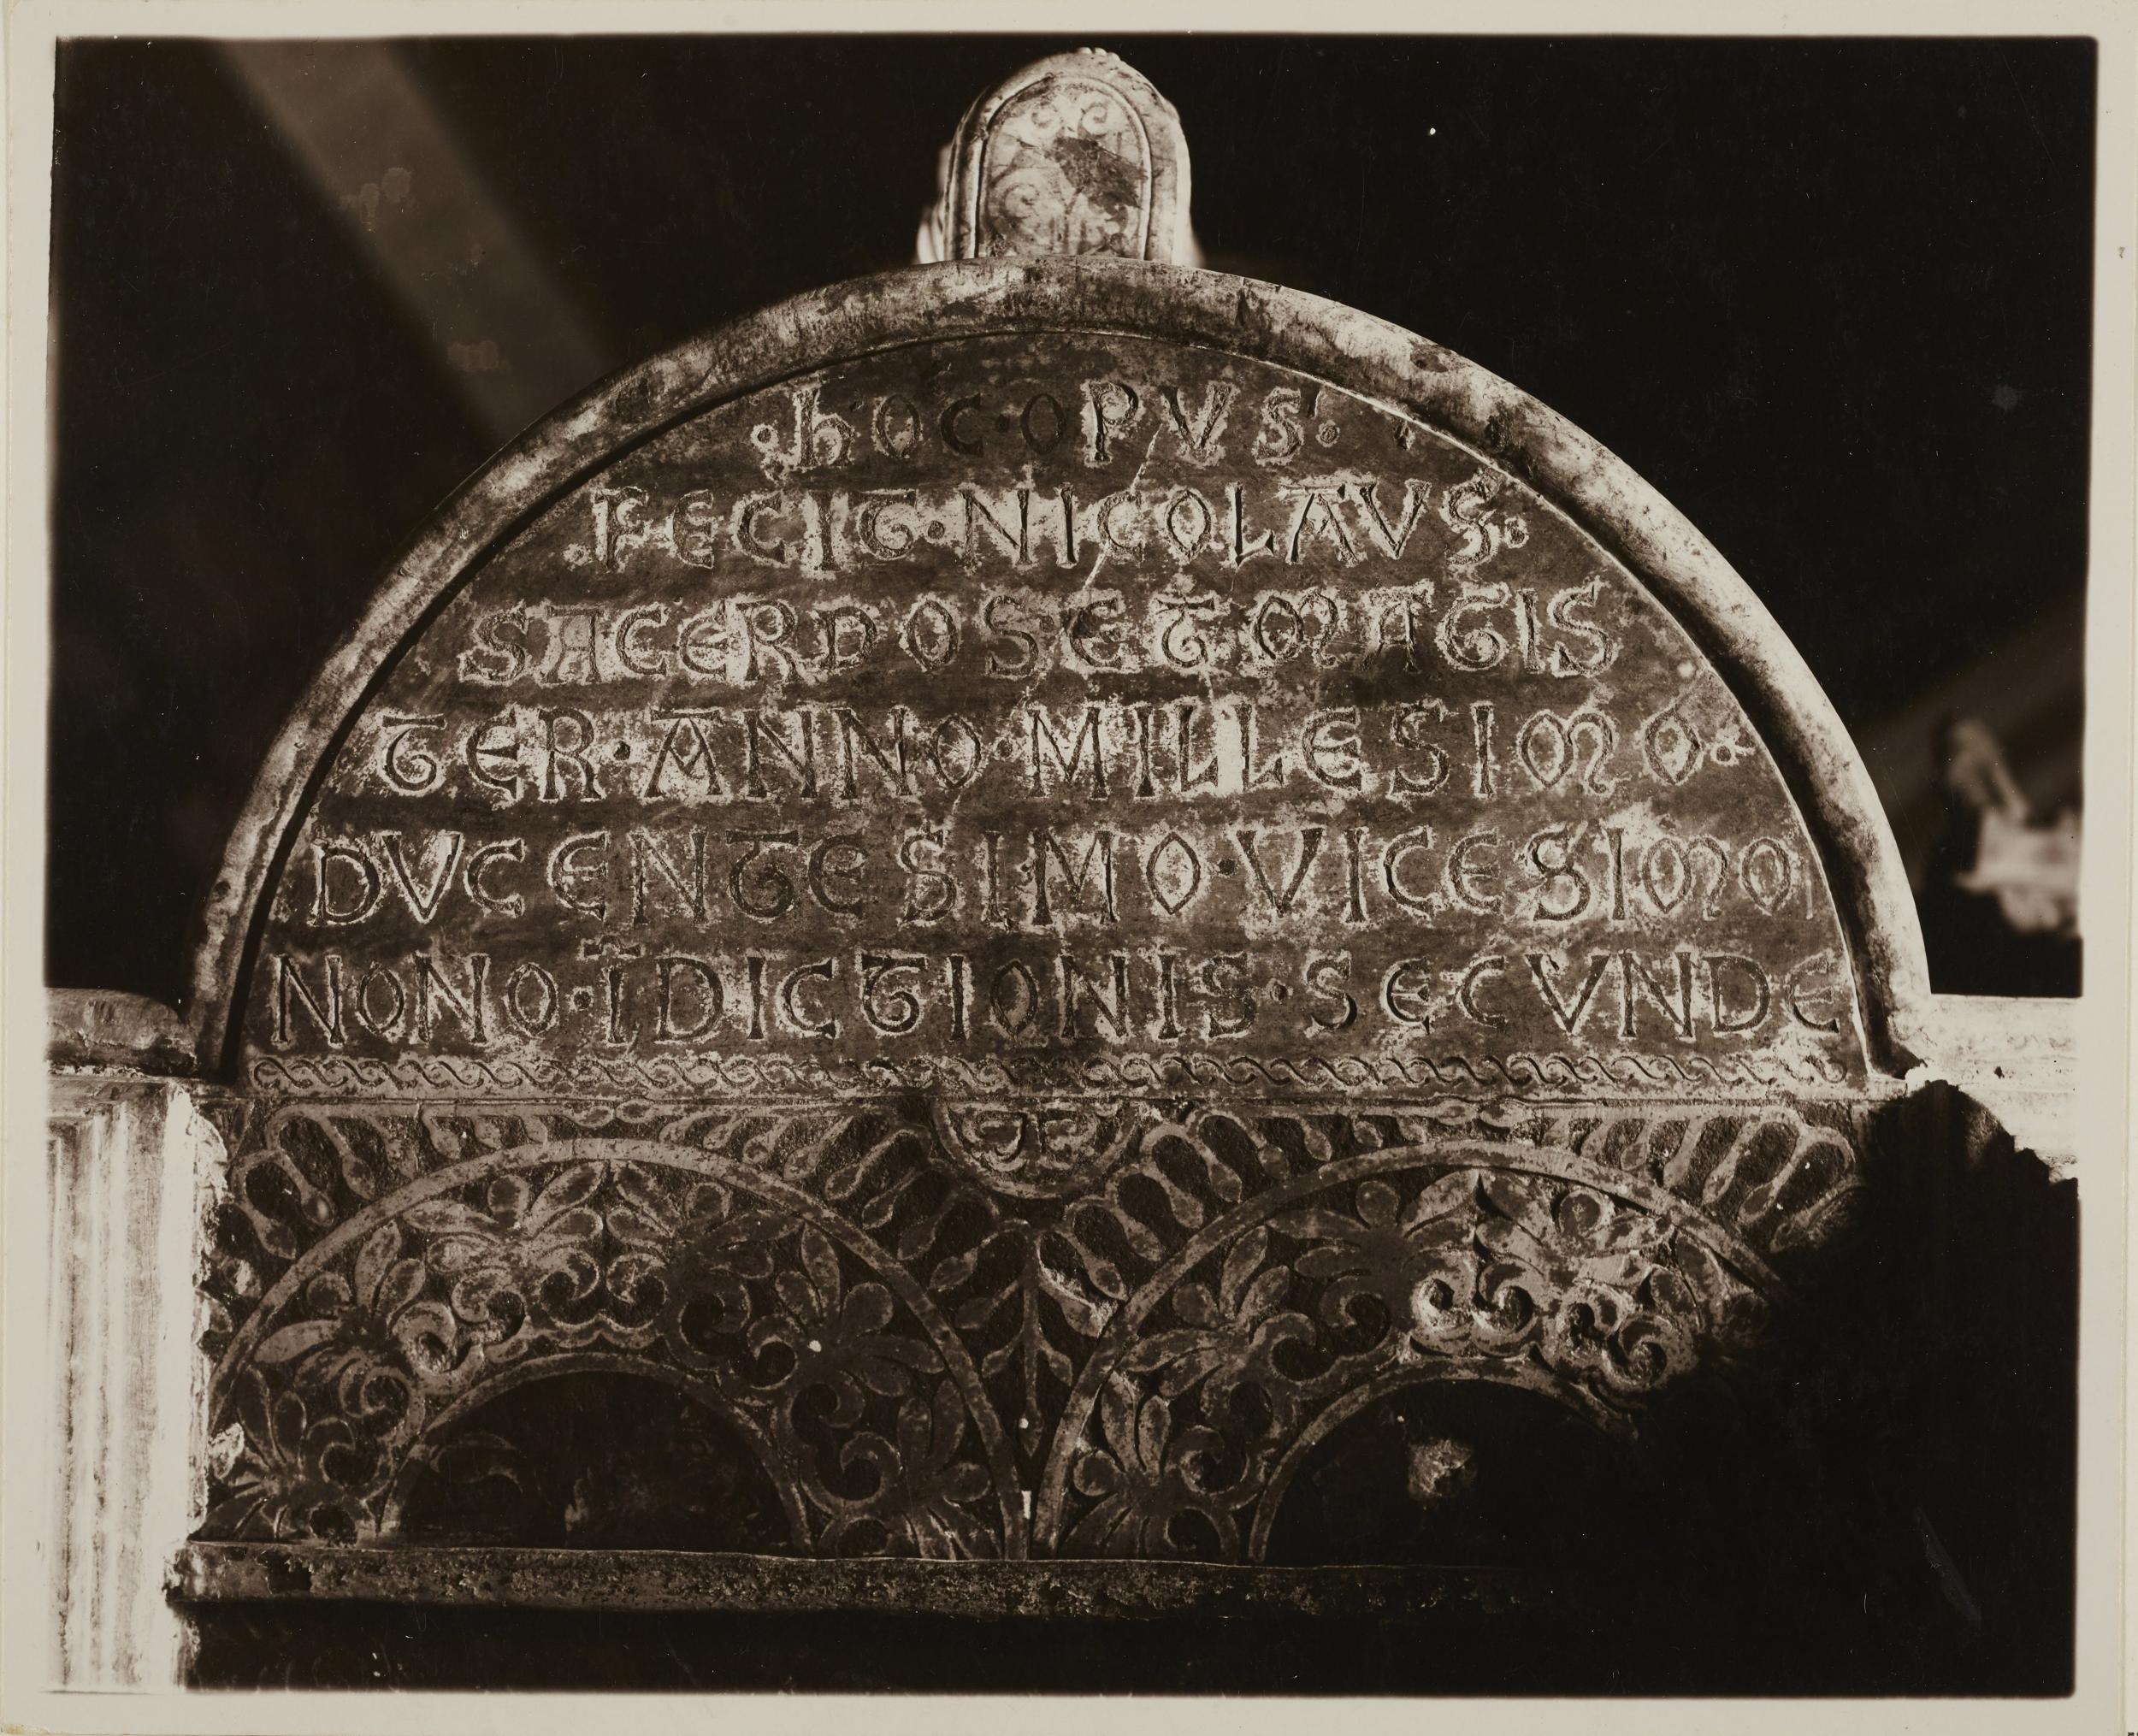 HOC·OPVS·
FECIT·NICOLAVS:
SACERDOS ET MAGIS
TER·ANNO·MILLESIMO
DVCENTESIMO·VICESIMO
NONO·ĪDICTIONIS·SECVNDE